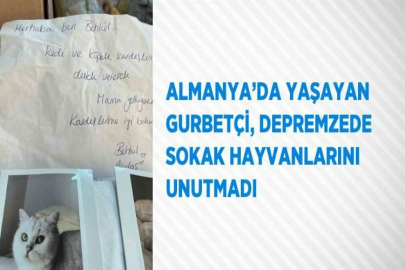 Merhaba ben Behlül..
Kedi ve köpek kardeşlerime
destek vererek
Mama yolluyorum
Kardeşlerime iyi bakın
Behlül
ALMANYA'DA YAŞAYAN
GURBETÇİ, DEPREMZEDE
SOKAK HAYVANLARINI
UNUTMADI